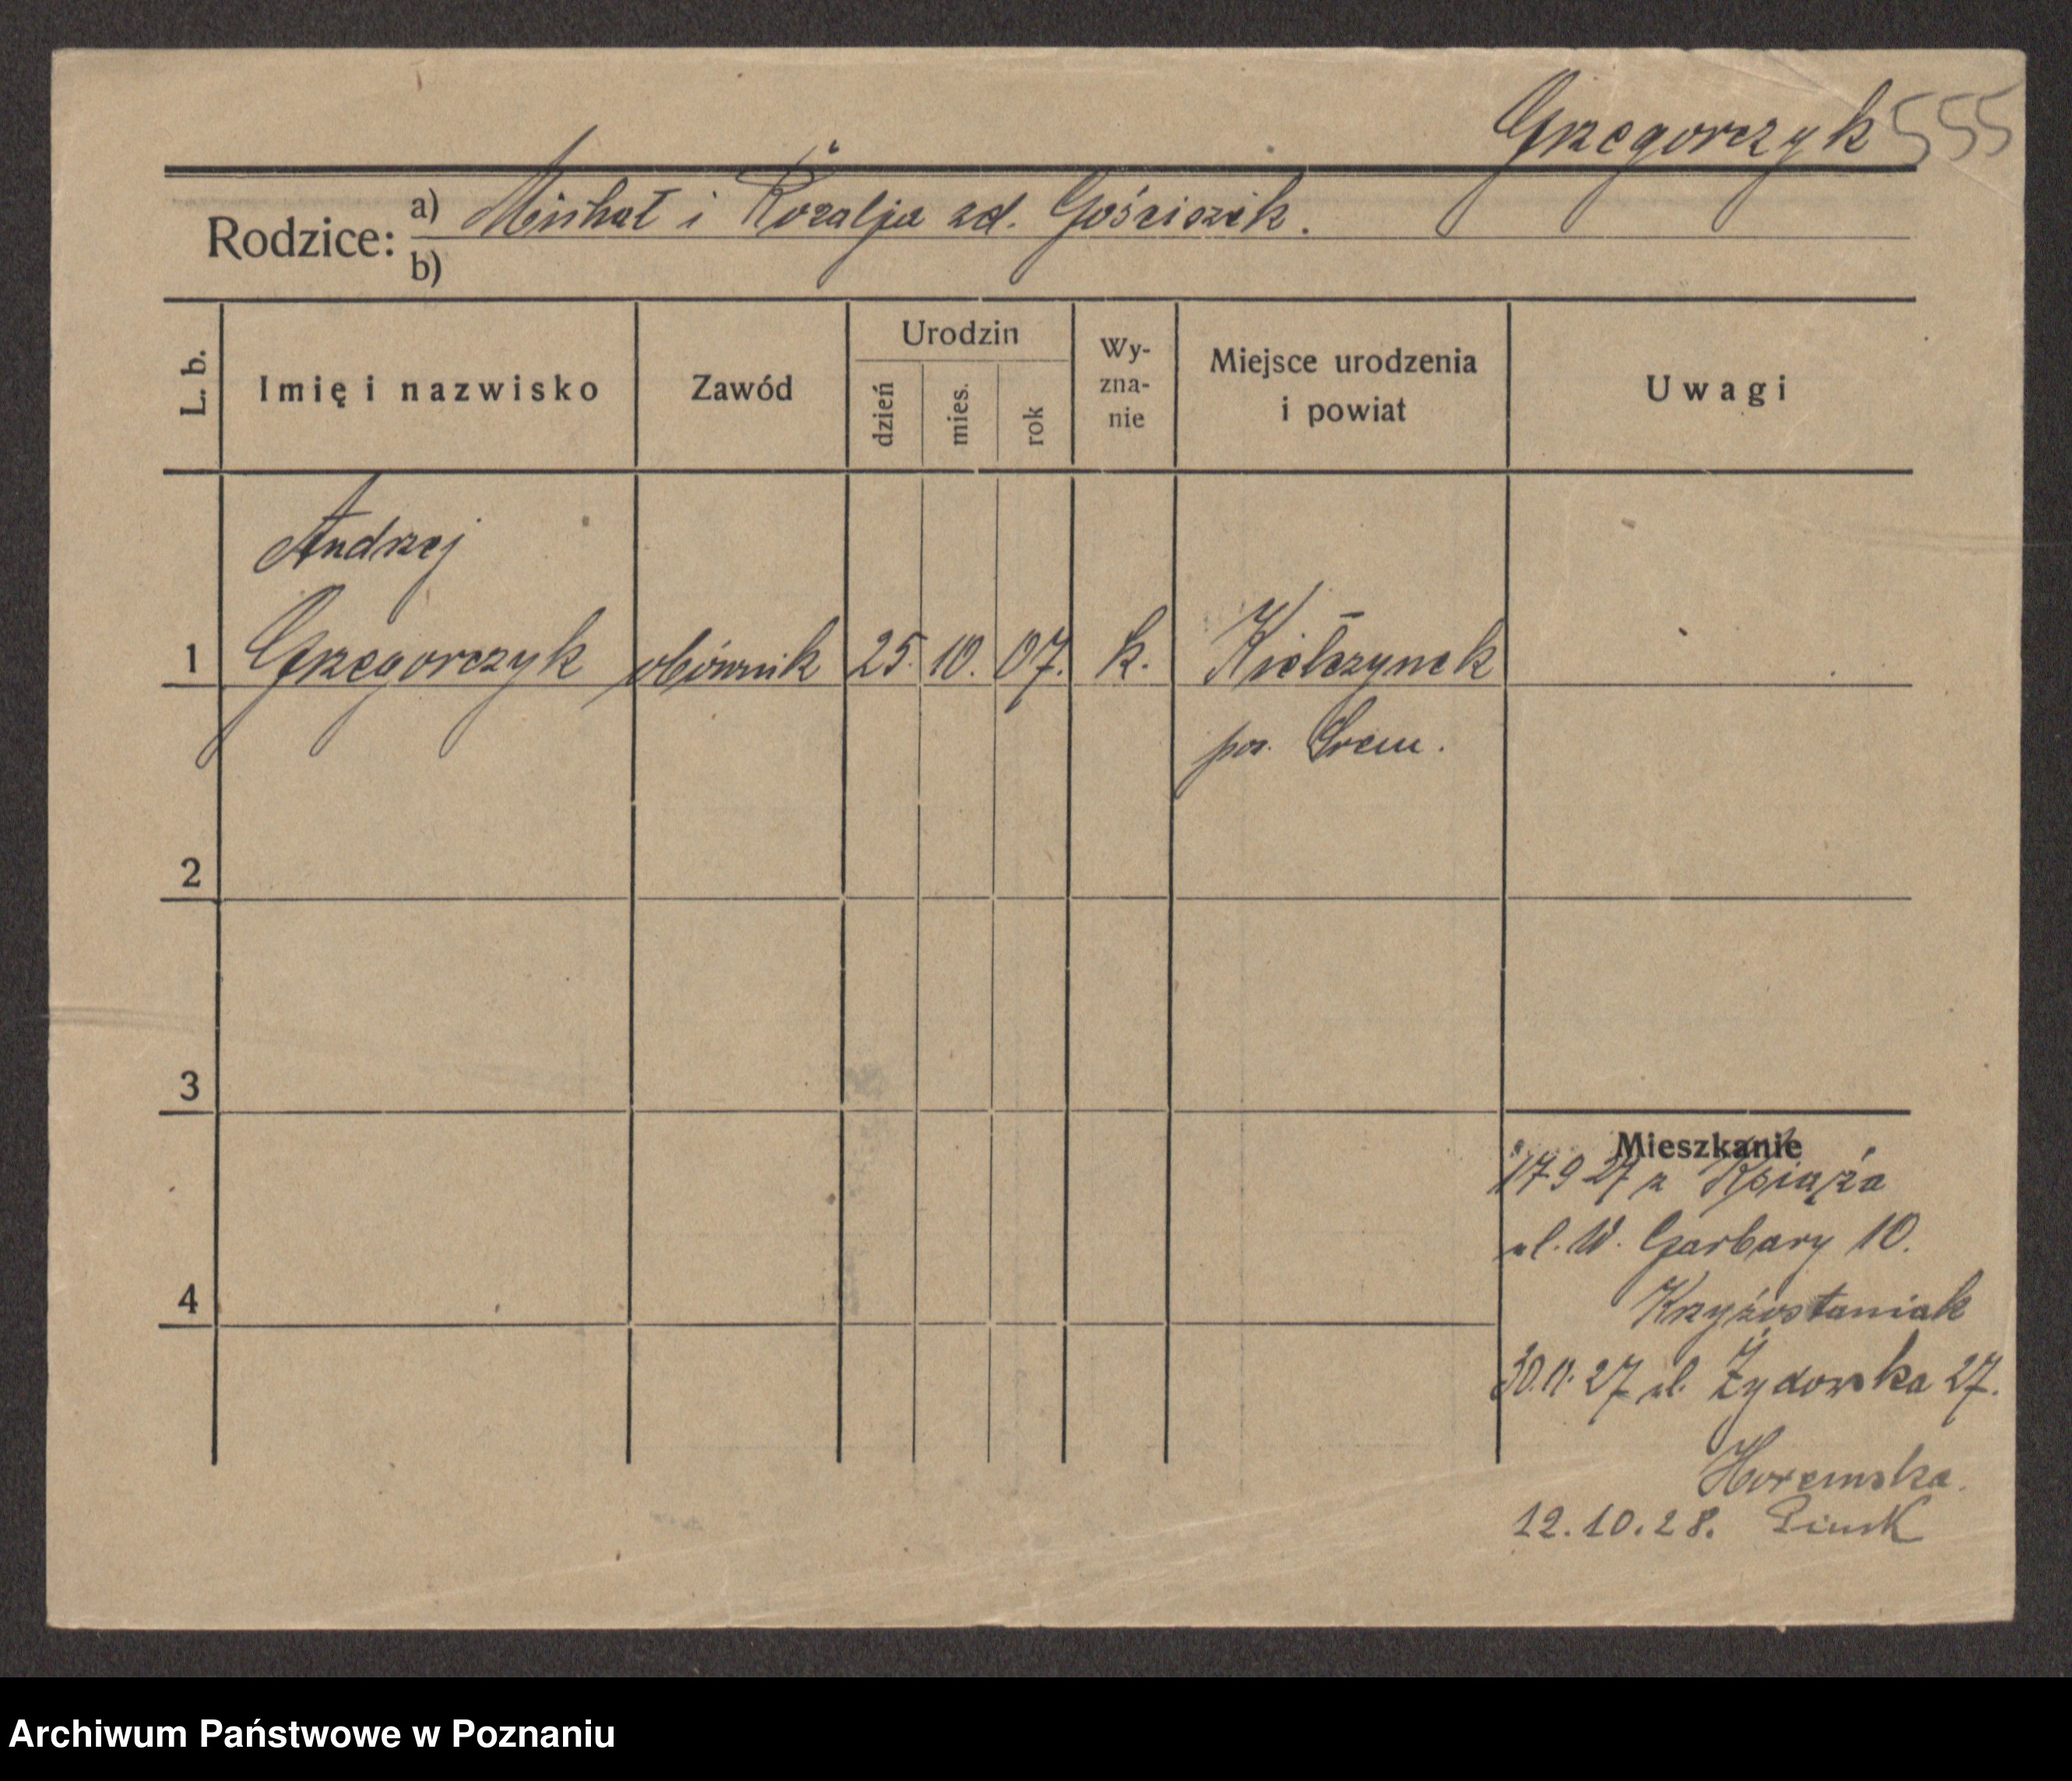 Grzegorczyk 555
Rodzice: a) Michał i Rozalja zd. Gościszek.
b)
L. b. Imię i nazwisko Zawód Urodzin dzień mies. rok Wy-zna-nie Miejsce urodzenia i powiat Uwagi
Andrzej
1 Grzegorczyk 25. 10. 07. k. Kiełczynek
pow. Śrem.
2
3
Mieszkanie
17 9 27 z Książa
ul. W. Garbary 10.
4 Krzyżostaniak
30.11.27 ul. Żydowska 27.
12.10.28. Pinsk
Archiwum Państwowe w Poznaniu